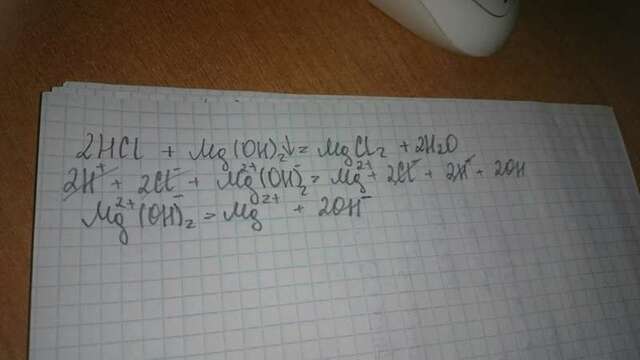 2HCl + Mg(OH)₂↓ = MgCl₂ + 2H₂O
2H⁺ + 2Cl⁻ + Mg²⁺(OH)⁻₂ = Mg²⁺ + 2Cl⁻ + 2H⁺ + 2OH
Mg²⁺(OH)⁻₂ = Mg²⁺ + 2OH⁻